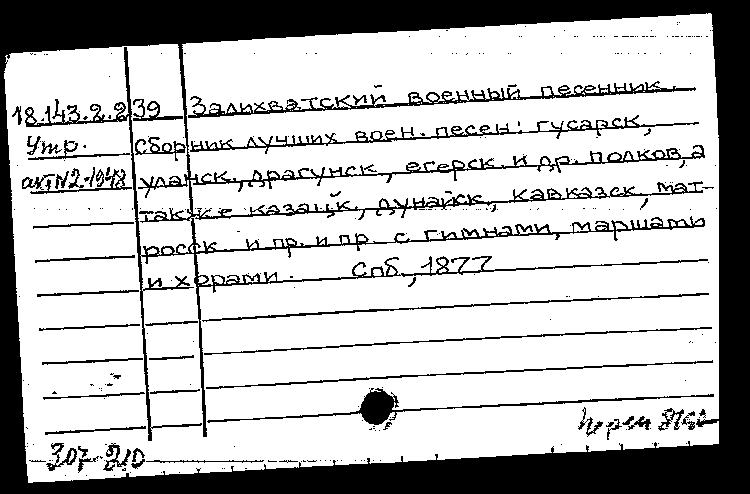 18.143.2.239 Залихватский военный песенник.
Утр. Сборник лучших воен. песен: гусарск.,
акт N2-1948 уланск., драгунск., егерск. и др. полков, а
также казацк., дунайск., кавказск., мат-
росск. и пр. и пр. с гимнами, маршами
и хорами. Спб., 1877
307-210